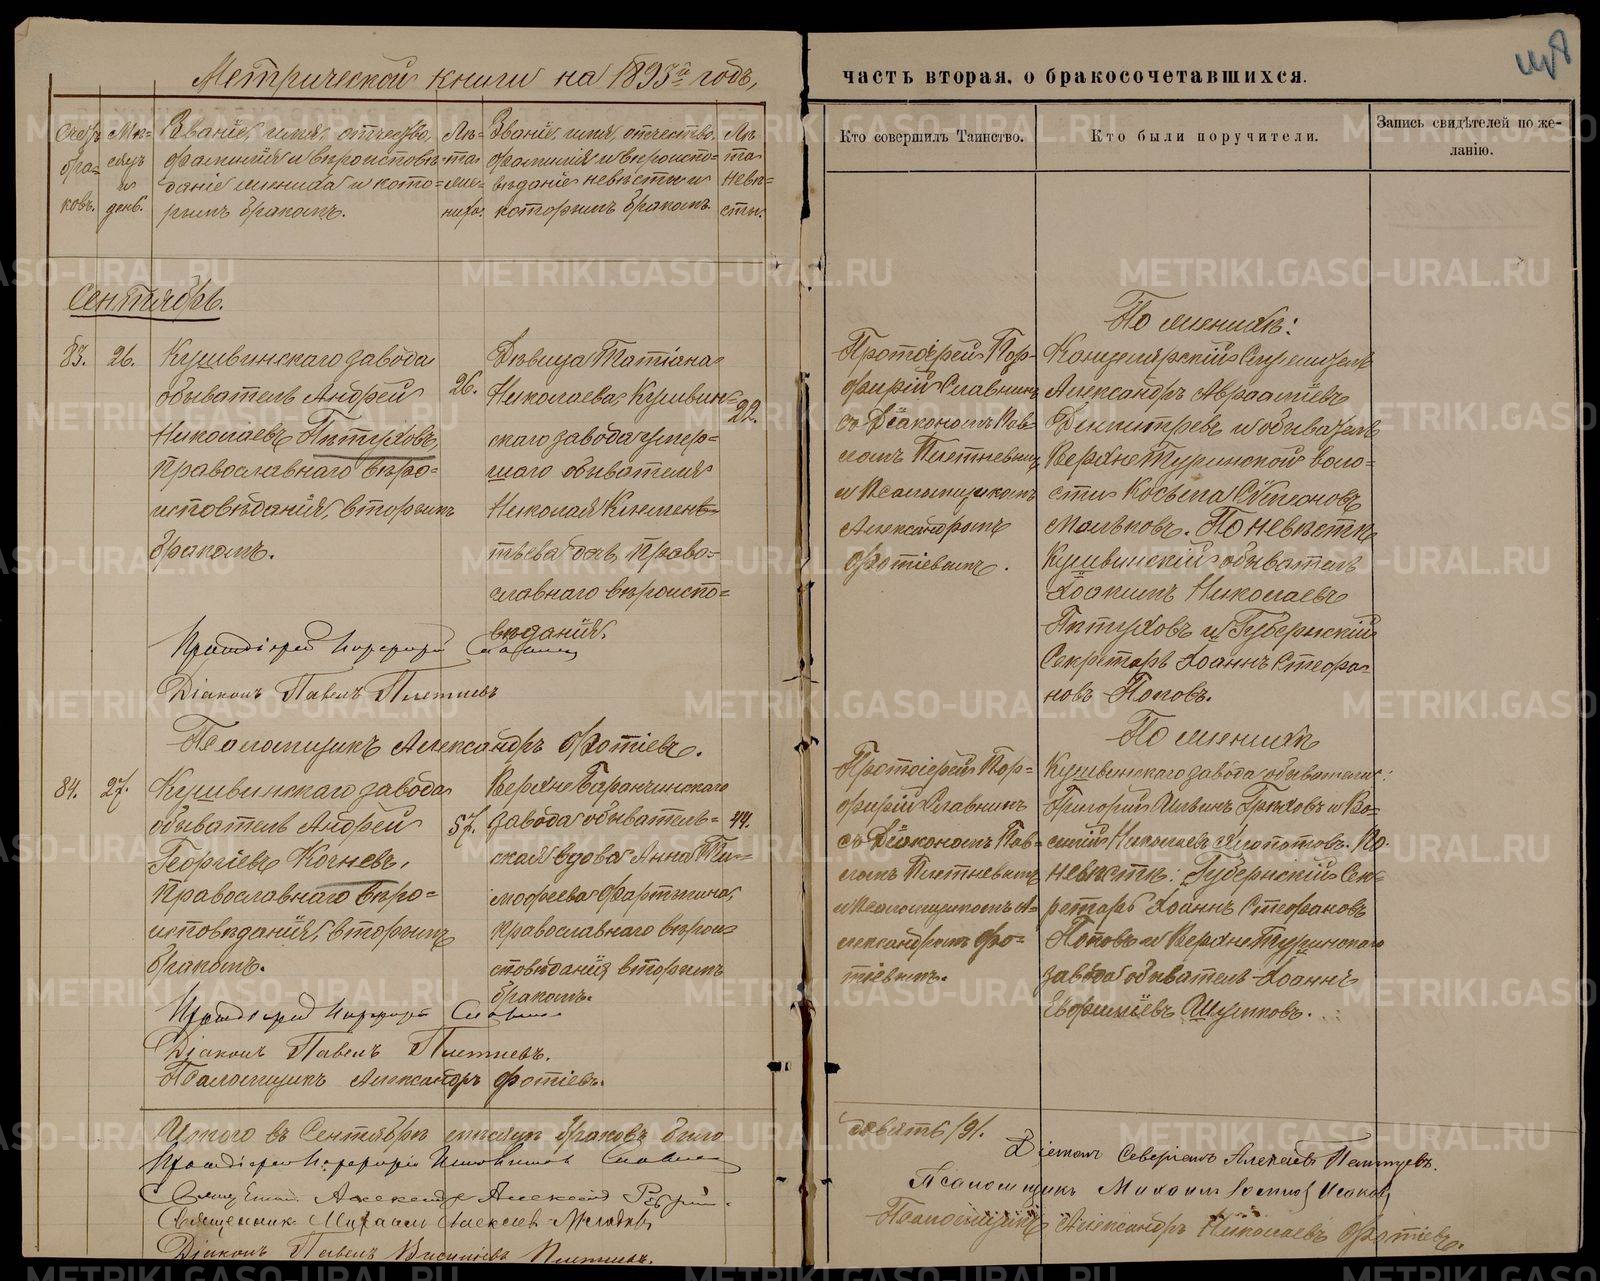 Метрической книги на 1895й годъ,
часть вторая, о бракосочетавшихся.
Счетъ браковъ.
Мѣсяцъ и день.
Званіе, имя, отчество,
фамилія и вѣроисповѣ-
даніе жениха и кото-
рымъ бракомъ.
Лѣ-
та
же-
ниха.
Званіе, имя, отчество,
фамилія и вѣроиспо-
вѣданіе невѣсты и
которымъ бракомъ.
Лѣ-
та
невѣ-
сты.
Кто совершилъ Таинство.
Кто были поручители.
Запись свидѣтелей по же-
ланію.
Сентябрь.
83. 26.
Кушвинскаго завода
обыватель Андрей
Николаевъ Пѣтуховъ,
православнаго вѣро-
исповѣданія, вторымъ
бракомъ.
26.
Дѣвица Татіана
Николаева, Кушвин-
скаго завода умер-
шаго обывателя
Николая Климен-
тьева дочь, право-
славнаго вѣроиспо-
вѣданія.
22.
Протоіерей Пор-
фирій Славнинъ
съ Діакономъ Пав-
ломъ Плетневымъ
и Псаломщикомъ
Александромъ
Фотіевымъ.
По женихѣ:
Канцелярскій Служитель
Александръ Аврааміевъ
Димитріевъ и обыватель
Верхне Туринской воло-
сти Косьма Сѵмеоновъ
Мальковъ. По невѣстѣ
Кушвинскій обыватель
Іоакимъ Николаевъ
Пѣтуховъ и Губернскій
Секретарь Іоаннъ Стефа-
новъ Поповъ.
Протоіерей Порфирій Славнинъ
Діаконъ Павелъ Плетневъ
Псаломщикъ Александръ Фотіевъ.
84. 27.
Кушвинскаго завода
обыватель Андрей
Георгіевъ Кочневъ,
православнаго вѣро-
исповѣданія, вторымъ
бракомъ.
57.
Верхне Баранчинскаго
завода обыватель-
ская вдова Анна Ти-
мофеева Фартыгина,
православнаго вѣрои-
сповѣданія вторымъ
бракомъ.
44.
Протоіерей Пор-
фирій Славнинъ
съ Діакономъ Пав-
ломъ Плетневымъ
и Псаломщикомъ А-
лександромъ Фо-
тіевымъ.
По женихѣ
Кушвинскаго завода обыватели:
Григорій Ильинъ Грѣховъ и Ва-
силій Николаевъ Молотовъ. По
невѣстѣ: Губернскій Сек-
ретарь Іоаннъ Стефановъ
Поповъ и Верхне Туринскаго
завода обыватель Іоаннъ
Евфиміевъ Шумковъ.
Протоіерей Порфирій Славнинъ
Діаконъ Павелъ Плетневъ.
Псаломщикъ Александръ Фотіевъ.
Итого въ Сентябрѣ мѣсяцѣ браковъ было
девять /9/.
Протоіерей Порфирій Славнинъ
Священникъ Александръ Алексѣевъ
Священникъ Михаилъ Алексѣевъ
Діаконъ Павелъ Васильевъ Плетневъ.
Діаконъ Северіанъ Алексѣевъ
Псаломщикъ Михаилъ Исаковъ
Псаломщикъ Александръ Николаевъ Фотіевъ.
METRIKI.GASO-URAL.RU